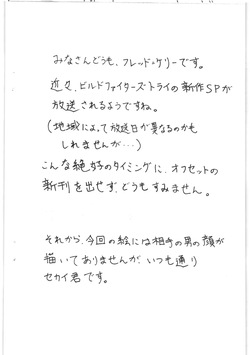 みなさんどうも、フレッド・ケリーです。
近々、ビルドファイターズ・トライの新作SPが
放送されるようですね。
(地域によって放送日が異なるのかも
しれませんが…)
こんな絶好のタイミングに、オフセットの
新刊を出せず、どうもすみません。
それから、今回の絵には相手の男の顔が
描いてありませんが、いつも通り
セカイ君です。